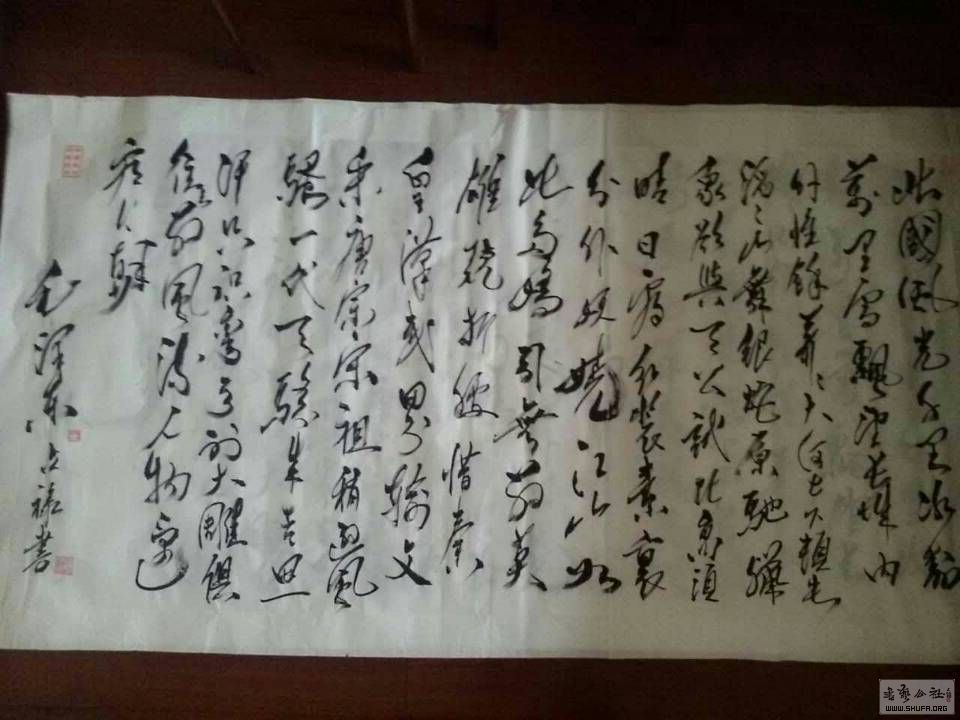 北國風光千里冰封
萬里雪飄望長城內
外惟餘莽々大河上下頓失
滔々山舞銀蛇原馳蠟
象欲與天公試比高須
晴日看紅裝素裹
分外妖嬈江山如
此多嬌引無數英
雄競折腰惜秦
皇漢武畧輸文
采唐宗宋祖稍遜風
騷一代天驕成吉思
汗只識彎弓射大雕俱
往矣數風流人物還
看今朝
毛澤東 書
WWW.SHUFA.ORG